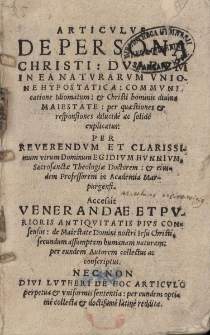 ARTICVLV
DE PERSON
CHRISTI: DV
IN EA NATVRARVM VNIO-
NE HYPOSTATICA: COMMVNI-
catione Idiomatum: & Christi hominis diuina
MAIESTATE: per quæstiones &
responsiones dilucidè ac solidè
explicatus:
PER
REVERENDVM ET CLARISSI-
mum virum Dominum EGIDIVM HVNNIVM,
Sacrosanctæ Theologiæ Doctorem: & eius-
dem Professorem in Academia Mar-
purgensi.
Accessit
VENERANDAE ET PV-
RIORIS ANTIQVITATIS PIVS CON-
sensus: de Maiestate Domini nostri Iesu Christi,
secundum assumptam humanam naturam:
per eundem Autorem collectus ac
conscriptus.
NEC NON
DIVI LVTHERI DE HOC ARTICVLO
perpetua & vniformis sententia: per eundem opti-
mè collecta & doctissimè latinè reddita.